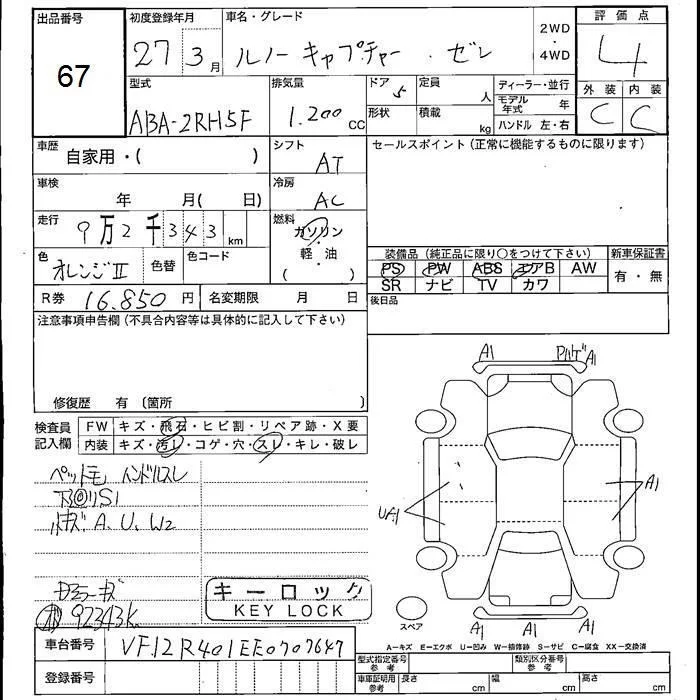 出品番号 初度登録年月 車名・グレード 2WD・4WD 評価点
67 27年3月 ルノー キャプチャー ・ ゼン 4
型式 排気量 ドア 5 定員 人 ディーラー・並行 外装 内装
ABA-2RH5F 1.200 CC 形状 積載 kg モデル年式 年 C C
ハンドル 左・右
車歴 自家用・( ) シフト AT セールスポイント(正常に機能するものに限ります)
車検 年 月( 日) 冷房 AC
走行 9万2千343km 燃料 ガソリン・軽・油 ( )
色 オレンジII 色替 色コード 装備品(純正品に限り○をつけて下さい) 新車保証書
PS PW ABS エアB AW 有・無
SR ナビ TV カワ
R券 16.850円 名変期限 月 日 後日品
注意事項申告欄(不具合内容等は具体的に記入して下さい)
修復歴 有 〔箇所 〕
検査員記入欄 FW キズ・飛石・ヒビ割・リペア跡・X要
内装 キズ・汚レ・コゲ・穴・スレ・キレ・破レ
A1 A1
ハンドルスレ
UA1 A1
小キズ A. U. W2
92343K
キーロック
KEY LOCK
スペア A1 A1 A1
A-キズ E-エクボ U-凹み W-補修跡 S-サビ C-腐食 XX-交換済
車台番号 VF12R401EE0707647 型式指定番号 参考 類別区分番号 参考
登録番号 車庫証明用 参考 長さ cm 幅 cm 高さ cm